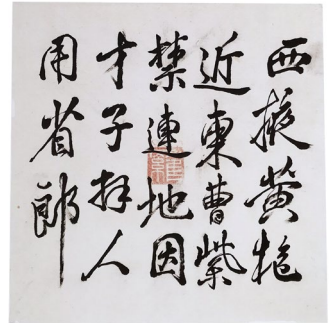 西掖黄枢
近東曹紫
禁連地因
才子拜人
用省郎